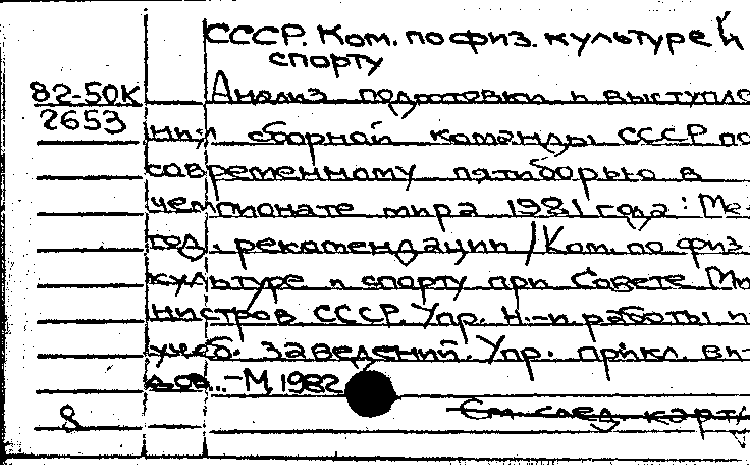 СССР. Ком. по физ. культуре и
спорту
82-50К Анализ подготовки и выступле
2653
ния сборной команды СССР по
современному пятиборью в
чемпионате мира 1981 года: Ме-
тод. рекомендации / Ком. по физ.
культуре и спорту при Совете Ми
нистров СССР. Упр. н.-и. работы и
учеб. заведений. Упр. прикл. ви-
дов..-М, 1982
См след. карт
8